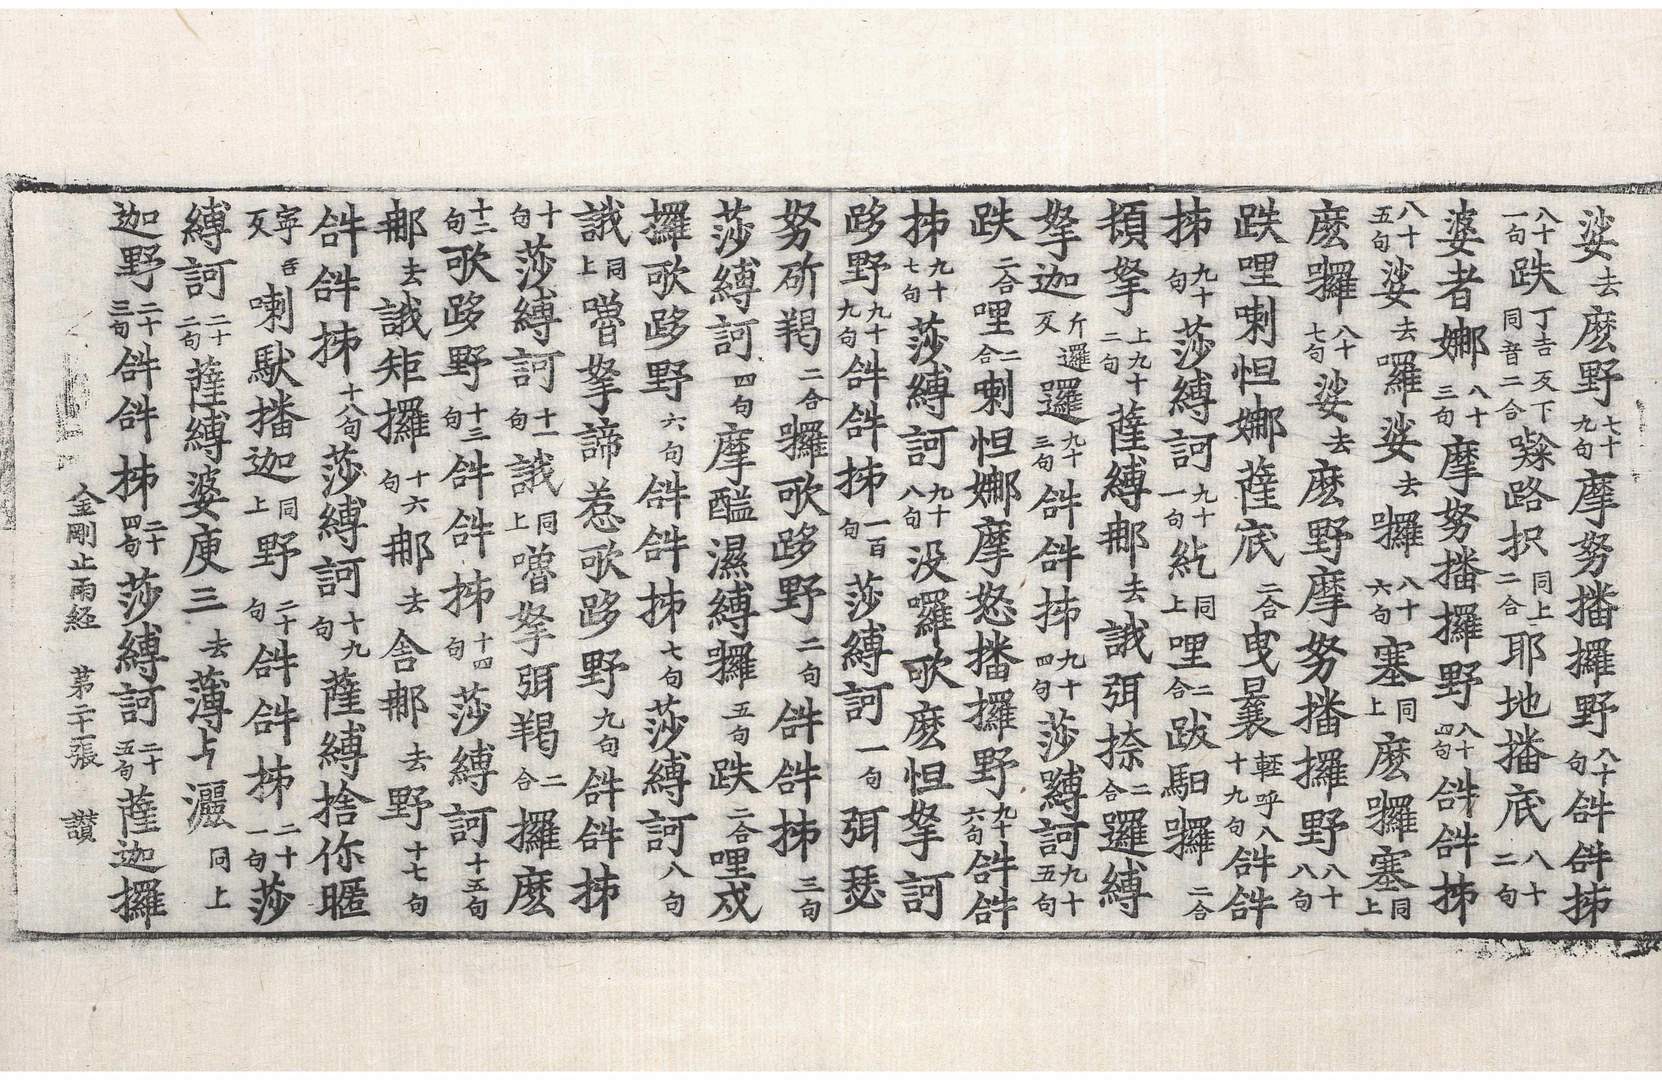 娑去麽野七十九句摩努播攞野八十句𤙖𤙖㧊
八十一句跌丁吉反下同音二合路択同上二合耶地播底八十二句
婆者娜八十三句摩努播攞野八十四句𤙖𤙖㧊
八十五句娑去囉娑去囉八十六句塞同上麽囉塞同上
麽囉八十七句娑去麽野摩努播攞野八十八句
跌哩喇怛娜薩底二合曳曩輕呼八十九句𤙖𤙖
㧊九十句莎縛訶九十一句紇同上哩二合跋馹囉二合
頞拏上九十二句薩縛那去誐弭捺二合邏縛
拏迦斤邏反邏九十三句𤙖𤙖㧊九十四句莎縛訶九十五句
跌二合哩二合喇怛娜摩怒播攞野九十六句𤙖𤙖
㧊九十七句莎縛訶九十八句没囉歌麽怛拏訶
跢野九十九句𤙖𤙖㧊一百句莎縛訶一句弭瑟
努斫羯二合囉歌跢野二句𤙖𤙖㧊三句
莎縛訶四句摩醯濕縛囉五句跌二合哩戍
攞歌跢野六句𤙖𤙖㧊七句莎縛訶八句
誐同上嚕拏諦惹歌跢野九句𤙖𤙖㧊
十句莎縛訶十一句誐同上嚕拏弭羯二合攞麽
十二句歌跢野十三句𤙖𤙖㧊十四句莎縛訶十五句
那去誐矩攞十六句那去舍那去野十七句
𤙖𤙖㧊十八句莎縛訶十九句薩縛捨你暱
寧吞反喇馱播迦同上野二十句𤙖𤙖㧊二十一句莎
縛訶二十二句薩縛婆庾三去薄上灑同上
迦野二十三句𤙖𤙖㧊二十四句莎縛訶二十五句薩迦攞
金剛止雨経 第二十一張 讃